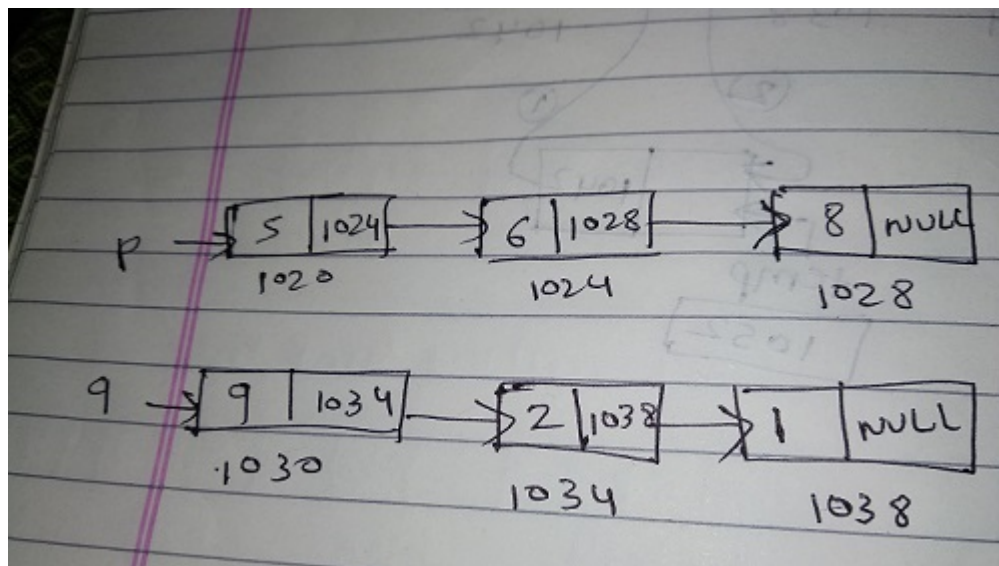 p 5 1024 6 1028 8 NULL
1020 1024 1028
q 9 1034 2 1038 1 NULL
1030 1034 1038